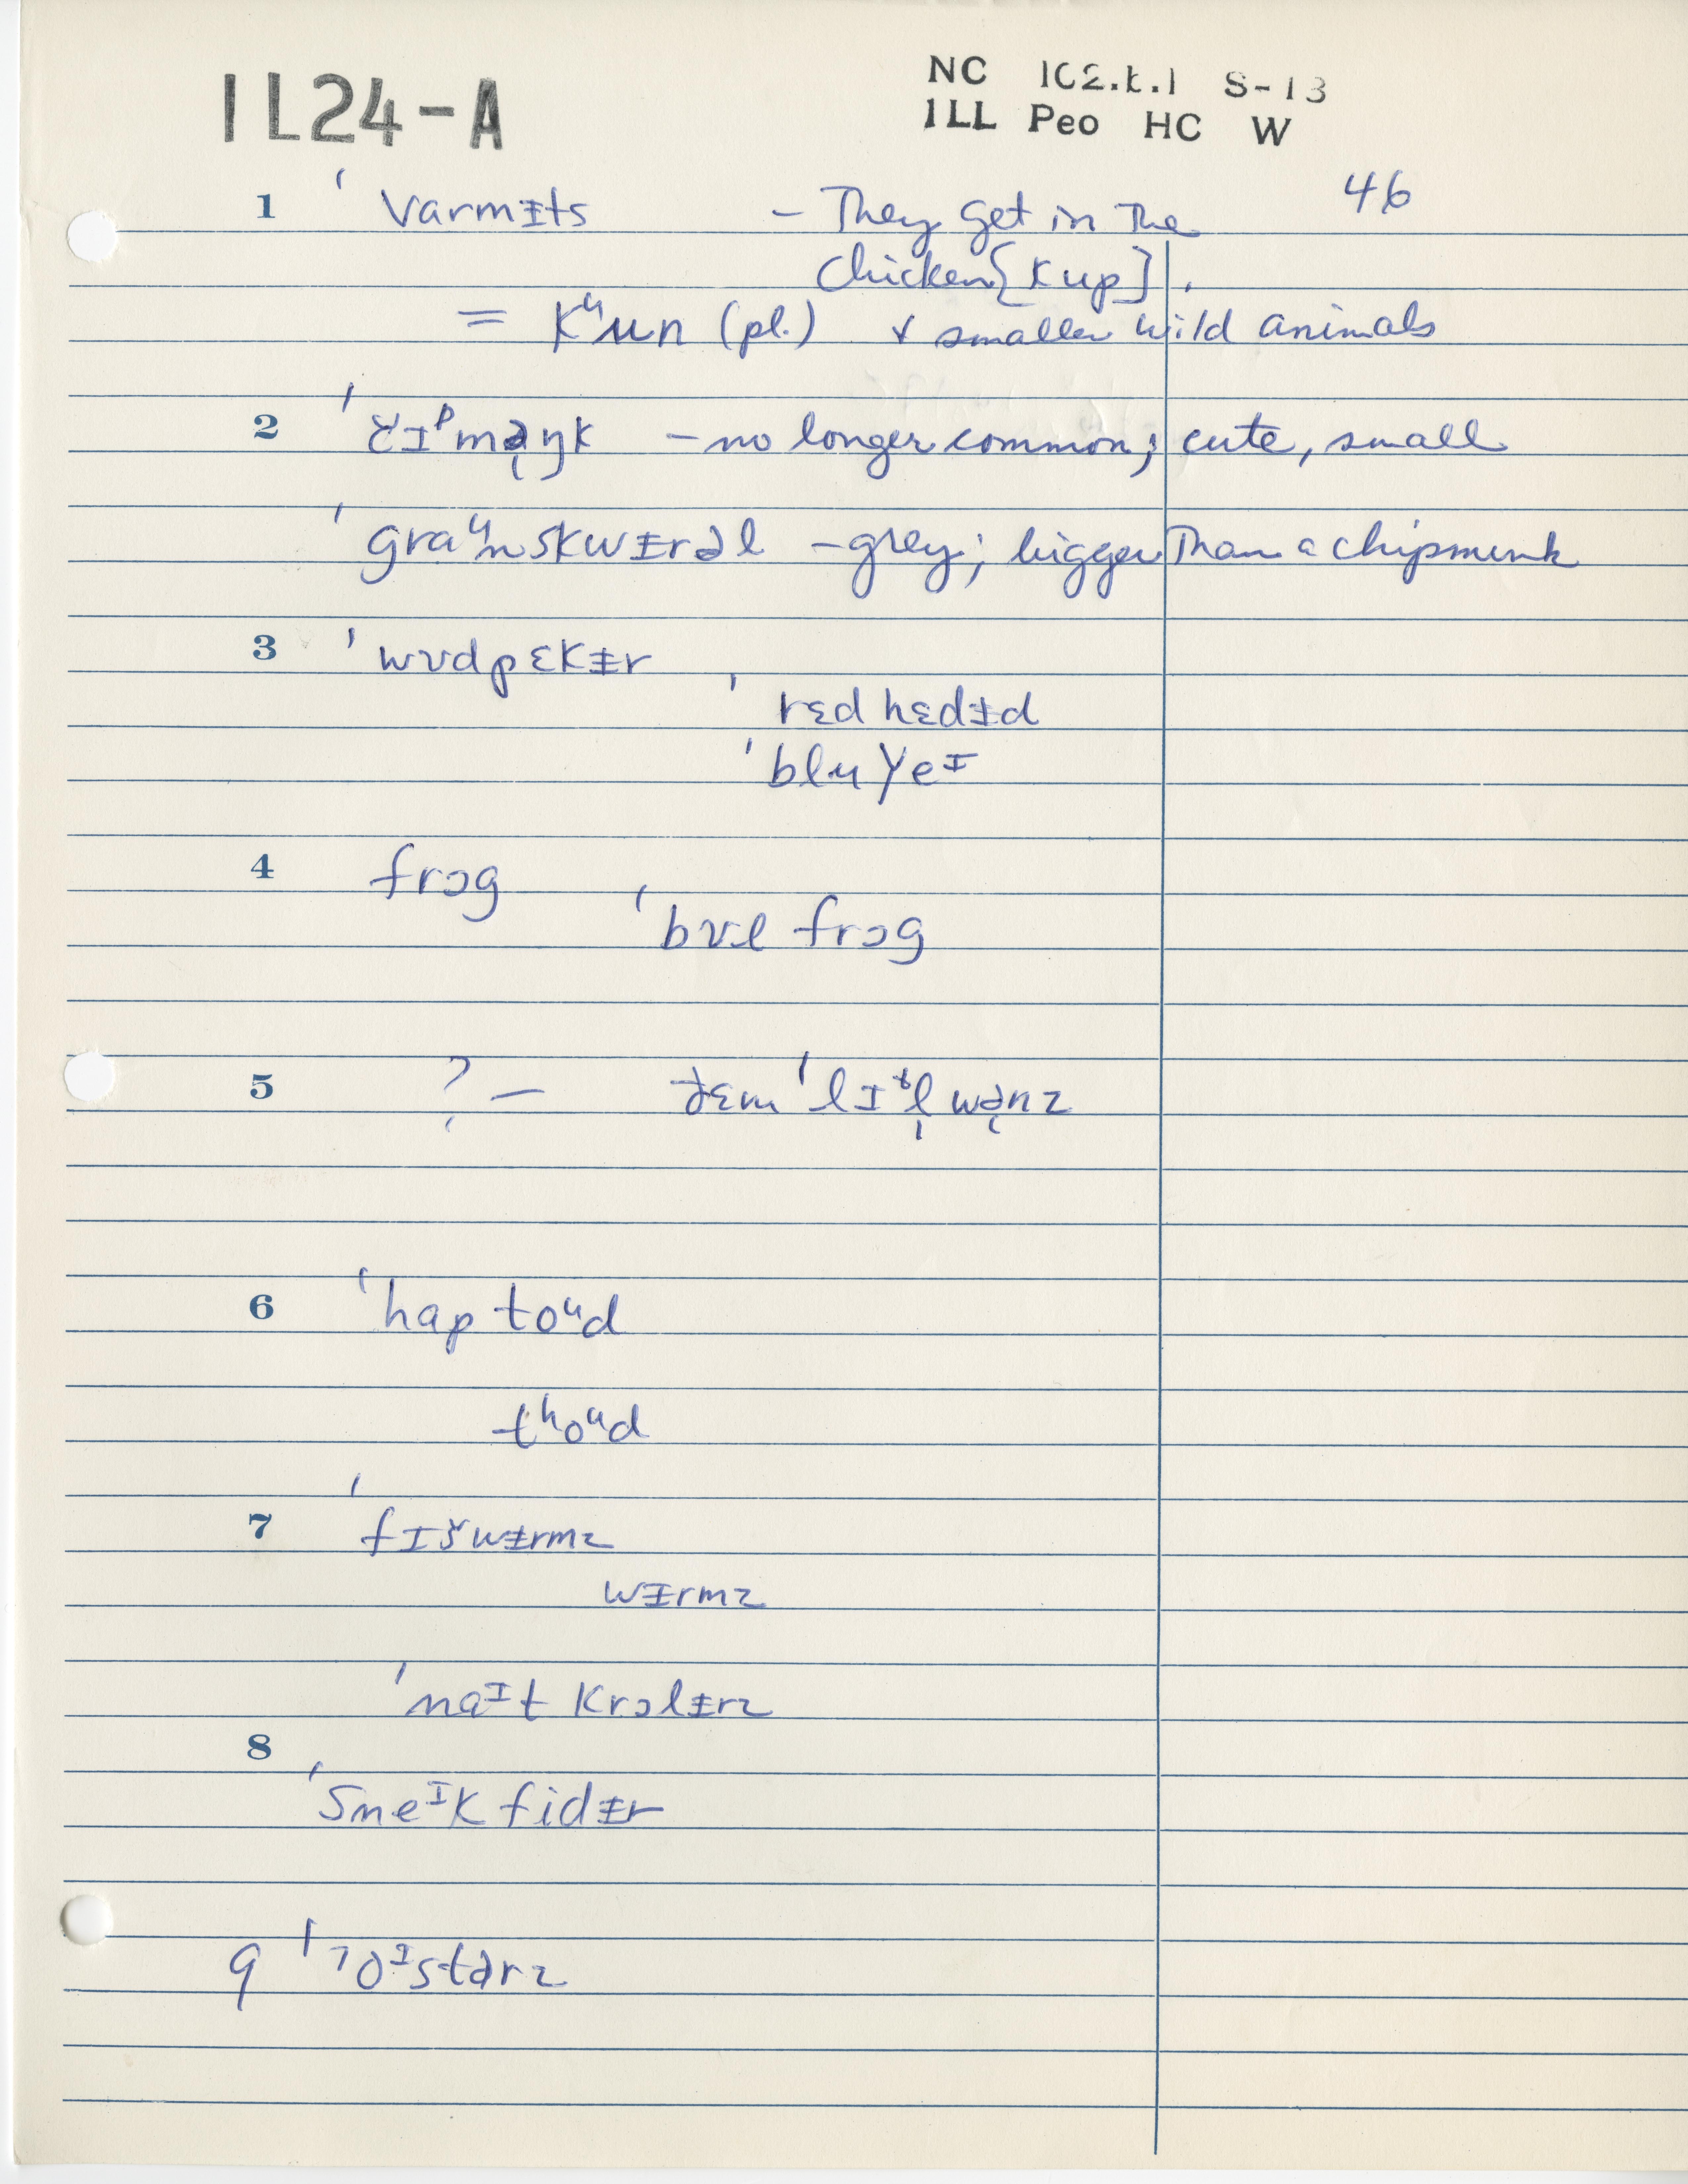 IL24-A
NC 1C2.k.1 S-13
ILL Peo HC W
46
1 ˈvarmᵻts – They get in the
chicken [kup].
= kᵘun (pl.) + smaller wild animals
2 ˈčɪᵖmə̨ŋk – no longer common; cute, small
ˈgraᵘnskwᵻrəl – grey; bigger than a chipmunk
3 ˈwʊdpɛkᵻr
ˈrɛd hɛdᵻd
ˈblu ǰeᶦ
4 frɔg
ˈbʊl frɔg
5 ? – ðɛm ˈlɪᵗ̬l̩ wə̨nz
6 ˈhap toᵘd
tʰoᵘd
7 ˈfɪšwᵻrmz
wᵻrmz
ˈnaᶦt krɔlᵻrz
8
ˈsneᶦk fidᵻr
9 ˈʔɔᶦstərz